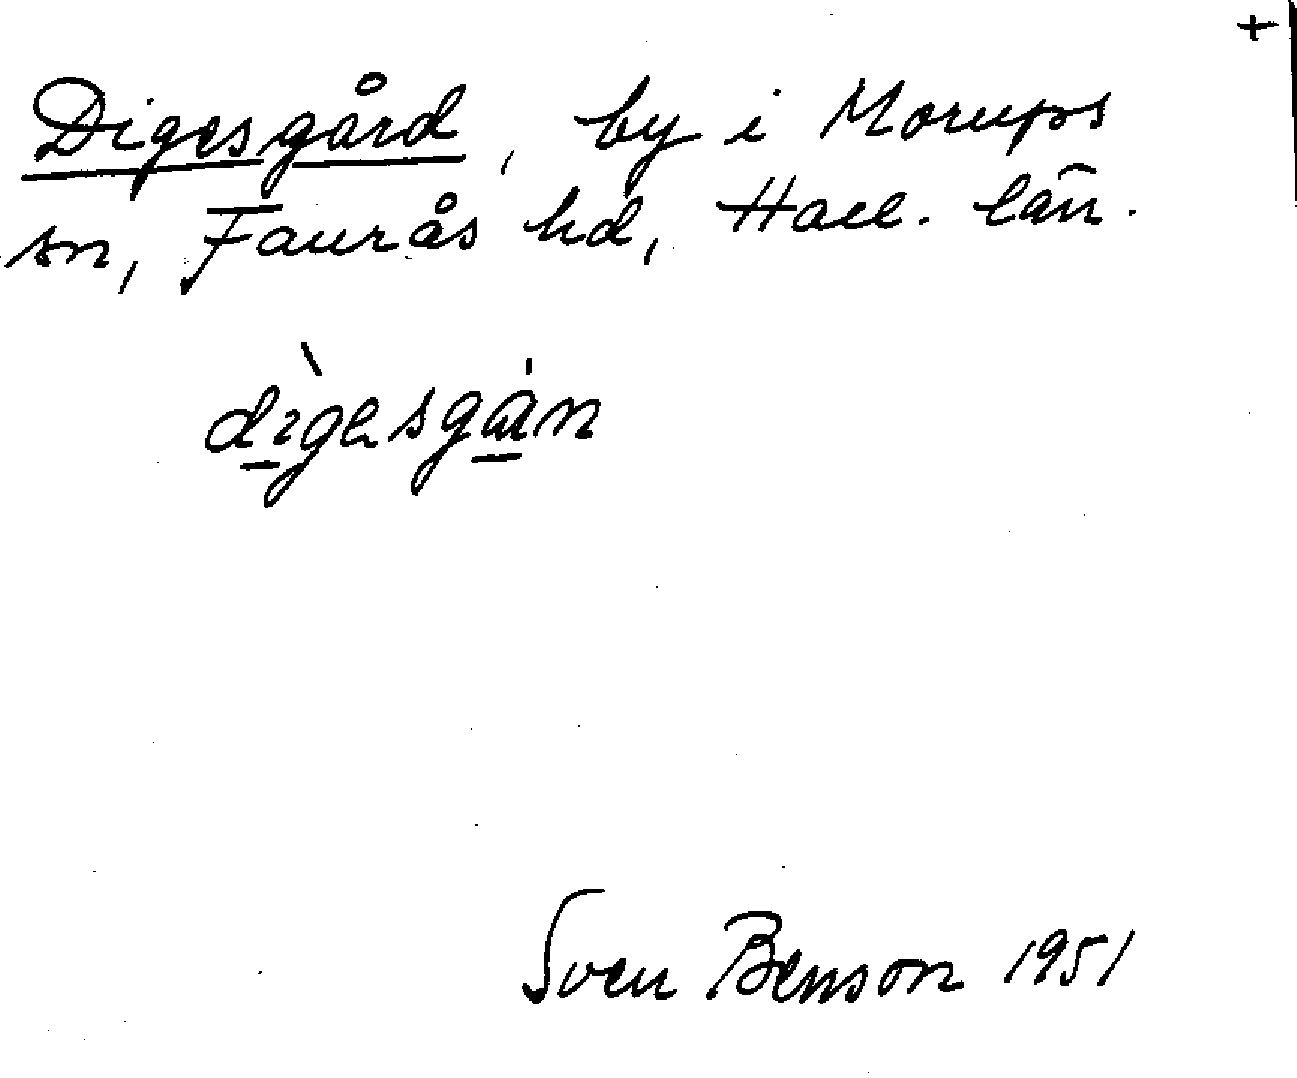 +
Digesgård, by i Morups
sn, Faurås hd, Hall. län.
dìgesgá̊n
Sven Benson 1951